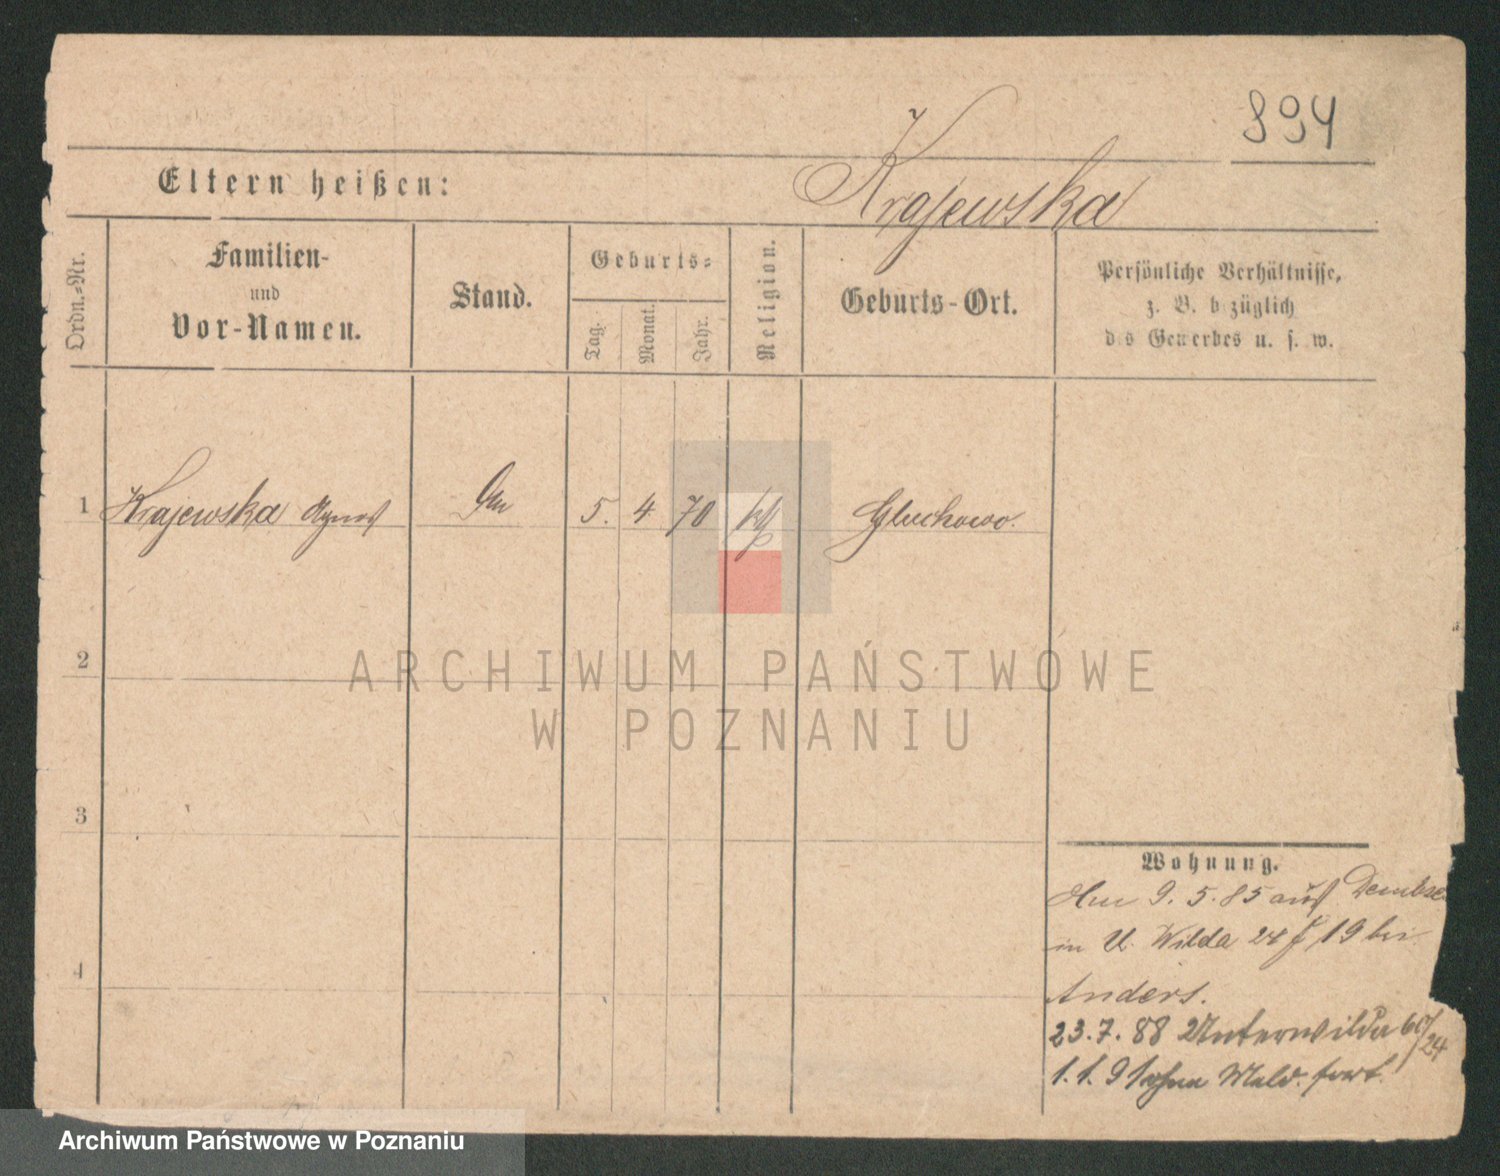 894
Eltern heißen:
Krajewska
Ordn.-Nr.
Familien-
und
Vor-Namen.
Stand.
Geburts-
Tag.
Monat.
Jahr.
Religion.
Geburts-Ort.
Persönliche Verhältnisse,
z. B. bezüglich
des Gewerbes u. s. w.
1 Krajewska 5. 4 70 Gluchowo.
2
ARCHIWUM PAŃSTWOWE
W POZNANIU
3
4
Wohnung.
9. 5. 85 aus
in U. Wilda 24 19 bei
Anders.
23. 7. 88 Unterwilda 60/24
1. 1. 91 ohne Meld. fort.
Archiwum Państwowe w Poznaniu